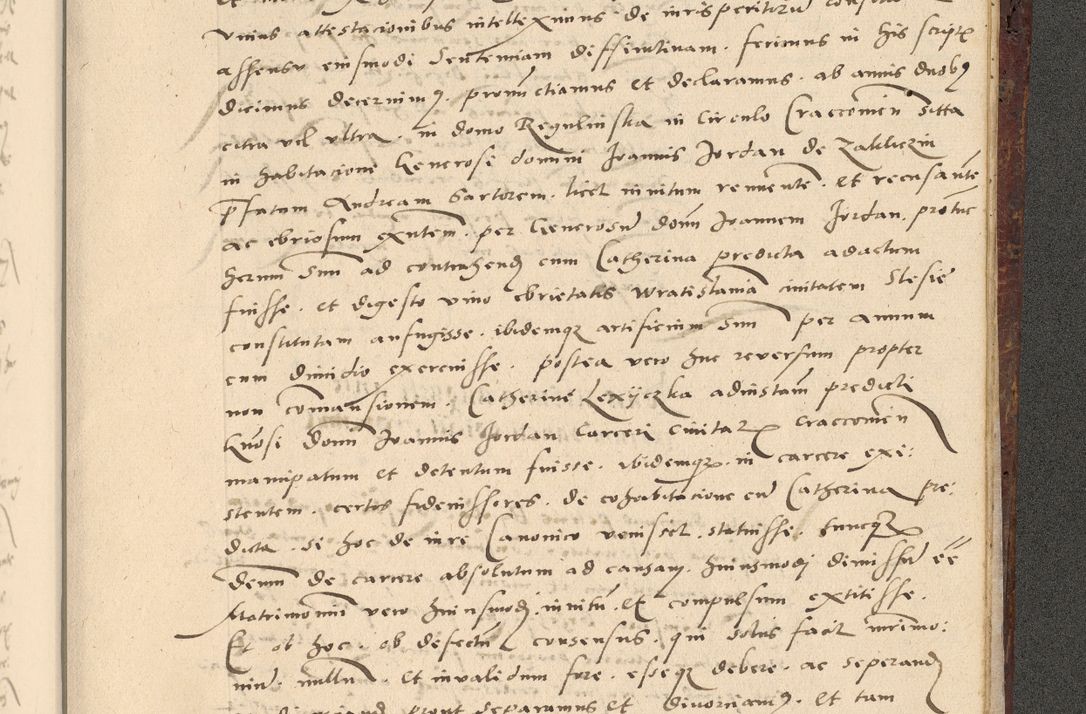 unius attestacionibus intelleximus de iurisperitorum
assensu eiusmodi Sentenciam diffinitivam ferimus in his scriptis
dicimus decernimus pronunctiamus et declaramus ab annis duobus
citra vel ultra in domo Regulinska in Circulo Craccovien Sitta
in habitacioni Generosi domini Joannis Jordan de Zakliczin
p̄fatum Andream Sartorem licet invitum renuente et recusante
ac ebriosum per Generosum domi Joannem Jordan protunc
herum suum ad contrahend cum Catherina predicta adactum
fuisse et digesto vino ebrietatis Wratislauia civitatem Slesie
constitutam aufugisse ibidemque artificium suum per annum
cum dimidio exercuisse postea vero huc reversum propter
non commansionem Catherine Lexyczka ad instam predicti
Gnosi domi Joannis Jordan Carceri Civitatis Craccovien
mancipatum et detentum fuisse ibidemque in carcere exi:
stentem certos fideiussores de cohabitacione cum Catherina pre:
dicta si hoc de iure Canonico venisset statuisse huncque
demum de carcere absolutum ad causam huiusmodi dimissum ee
Matrimonium vero huiusmodi invitum et compulsum extitisse
Et ob hoc ob defectum consensus qui solus facit mrimo:
nium nullum et invalidum fore esseque debere ac seperand
prout separamus et divorciamus et tam